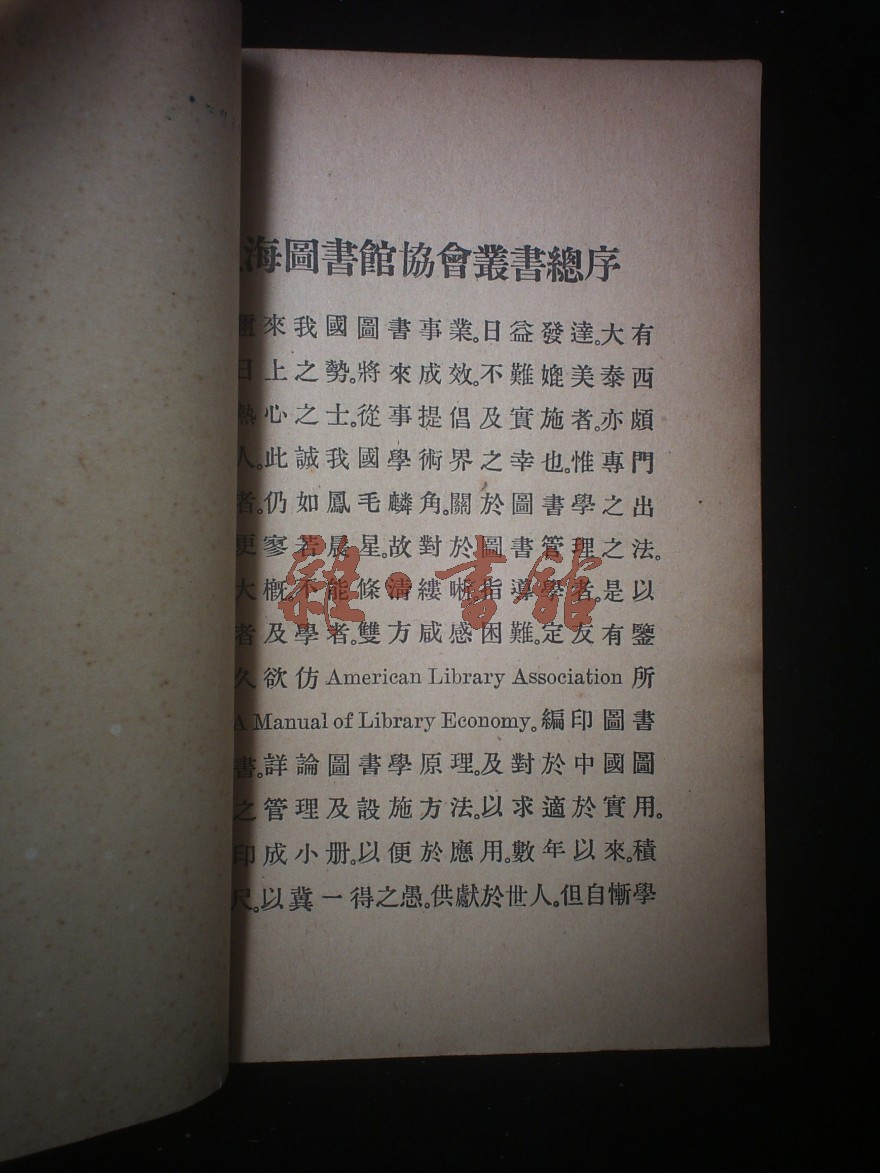 海圖書館協會叢書總序
來我國圖書事業。日益發達。大有
日上之勢。將來成效。不難媲美泰西
熱心之士。從事提倡及實施者。亦頗
人。此誠我國學術界之幸也。惟專門
者。仍如鳳毛麟角。關於圖書學之出
更寥若晨星。故對於圖書管理之法。
大槪。不能條清縷晰。指導學者。是以
者及學者。雙方咸感困難。定友有鑒
久欲仿American Library Association所
A Manual of Library Economy。編印圖書
書。詳論圖書學原理。及對於中國圖
之管理及設施方法。以求適於實用。
印成小册。以便於應用。數年以來。積
尺。以冀一得之愚。供獻於世人。但自慚學
雜·書館